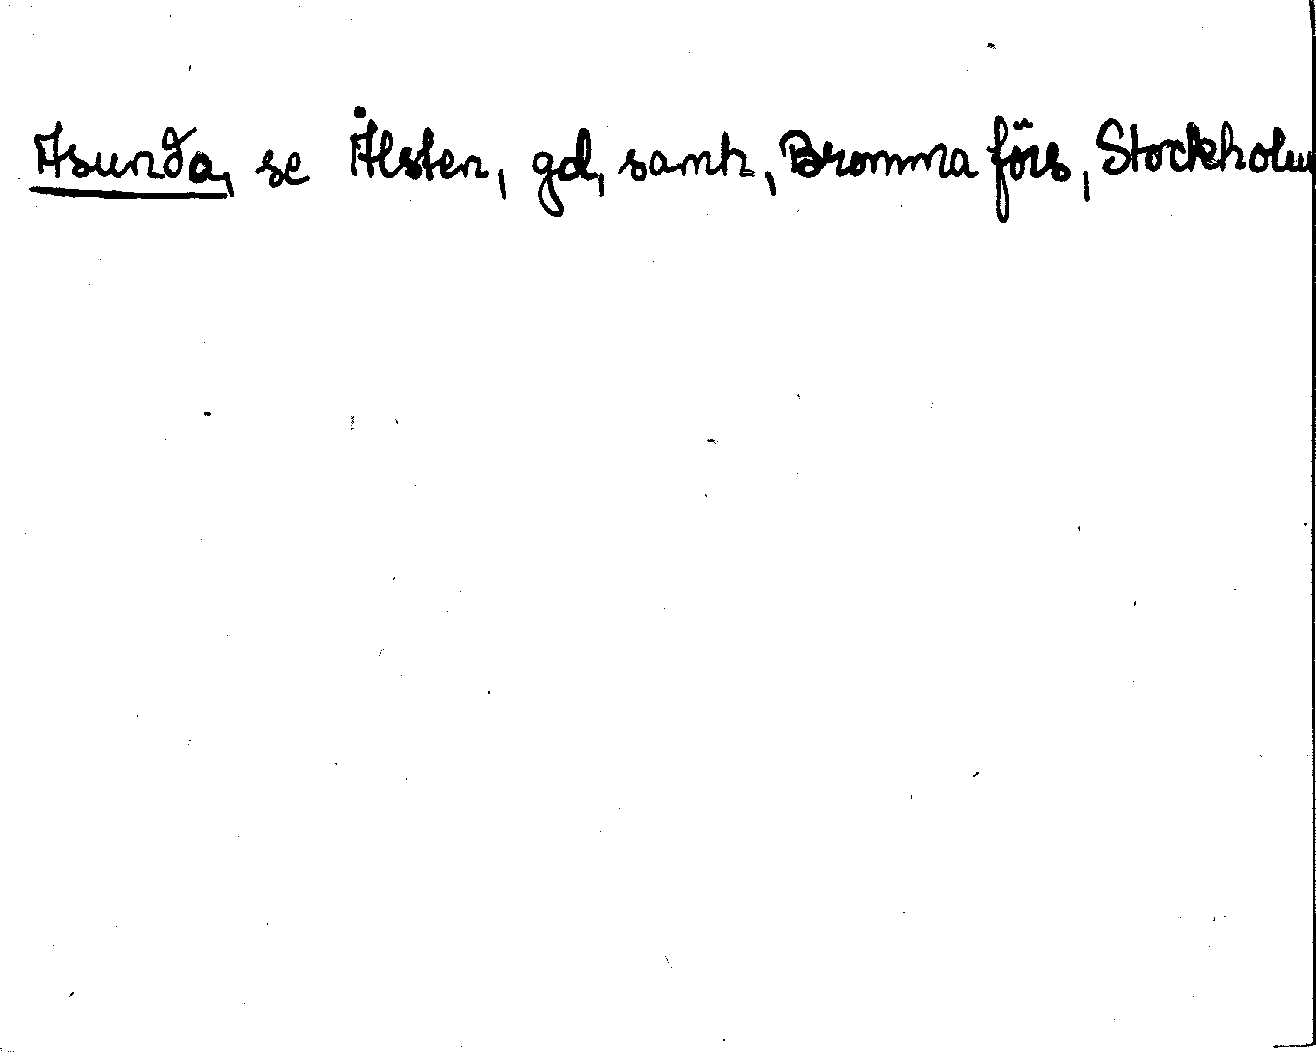 Asunda, se Ålsten, gd, samh, Bromma förs, Stockholm